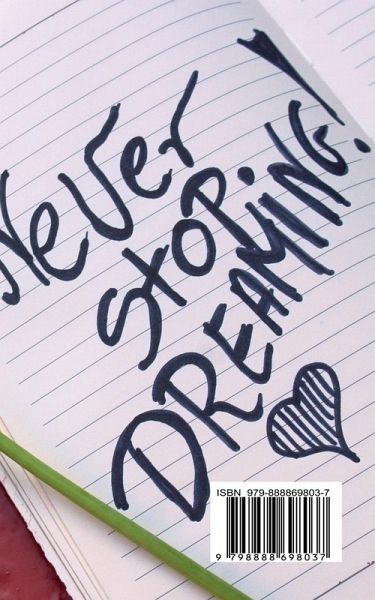 Never
STOP.
DREAMING!
ISBN 979-888869803-7
9 798888 698037